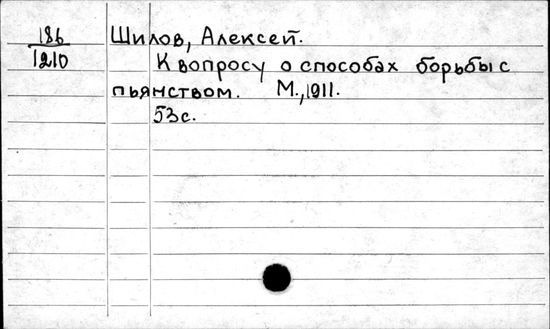 186 Шилов, Алексей.
1210 К вопросу о способах борьбы с
пьянством. М., 1911.
53 с.